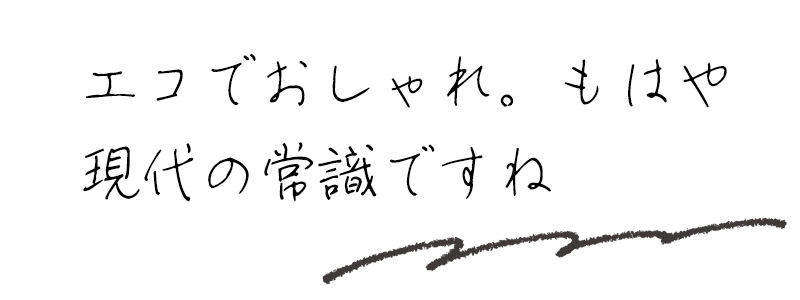 エコでおしゃれ。もはや
現代の常識ですね